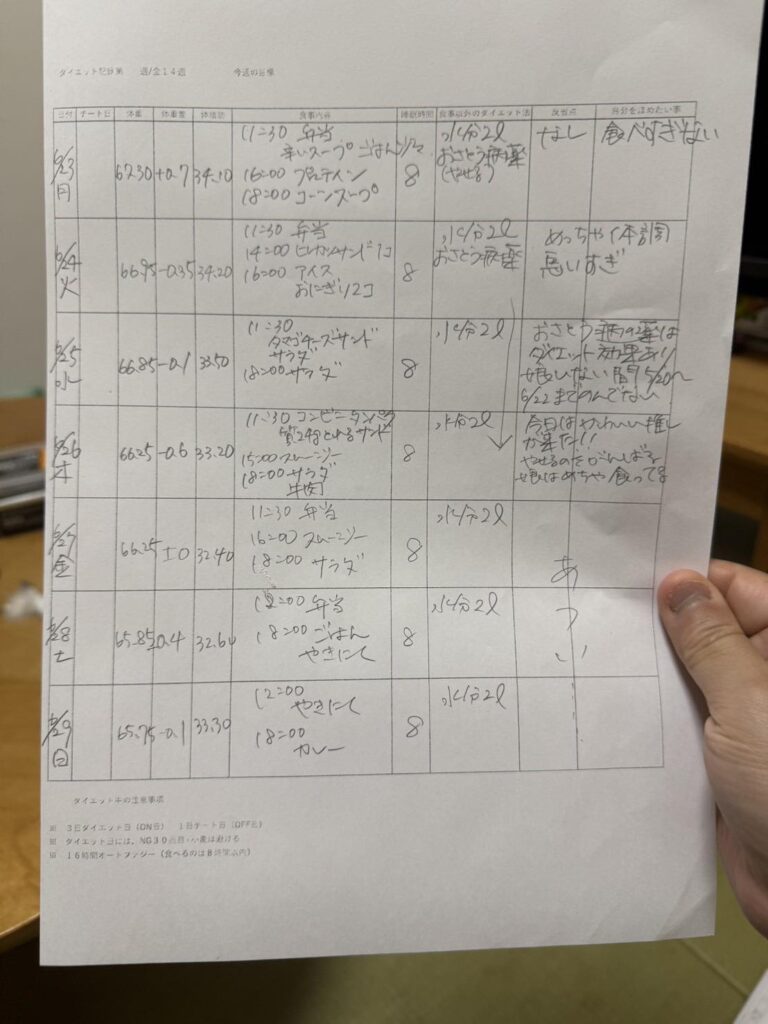 ダイエット記録第　週/全14週　今週の目標
日付 チート日 体重 体重差 体脂肪 食事内容 睡眠時間 食事以外のダイエット法 反省点 自分を褒めたい事
6/23 月 67.30 +0.7 34.10
11:30 弁当
辛いスープ ごはん
16:00 プロテイン
18:00 コーンスープ
8
水分2l
おさとう病薬
(やせる)
なし
食べすぎない
6/24 火 66.95 -0.35 34.20
11:30 弁当
14:00 ヒレカツサンド1コ
16:00 アイス
おにぎり2コ
8
水分2l
おさとう病薬
めっちゃ体調
悪いすぎ
6/25 水 66.85 -0.1 33.50
11:30
タマゴチーズサンド
サラダ
18:00 サラダ
8
水分2l
おさとう病の薬は
ダイエット効果あり
娘いない間 5/20〜
6/22までのんでない
6/26 木 66.25 -0.6 33.20
11:30 コンビニタンパク
質24gとれるサンド
15:00 スムージー
18:00 サラダ
牛肉
8
水分2l
今日はかわいい推し
が来た!!
やせるのだがんばる
娘はめちゃ食ってる
6/27 金 66.25 ±0 32.40
11:30 弁当
16:00 スムージー
18:00 サラダ
8
水分2l
あ
つ
い
6/28 土 65.85 -0.4 32.60
12:00 弁当
18:00 ごはん
やきにく
8
水分2l
6/29 日 65.75 -0.1 33.30
12:00
やきにく
18:00
カレー
8
水分2l
ダイエット中の注意事項
※ 3日ダイエット日（ON日）　1日チート日（OFF日）
※ ダイエット日には、NG30品目・小麦は避ける
※ 16時間オートファジー（食べるのは8時間以内）